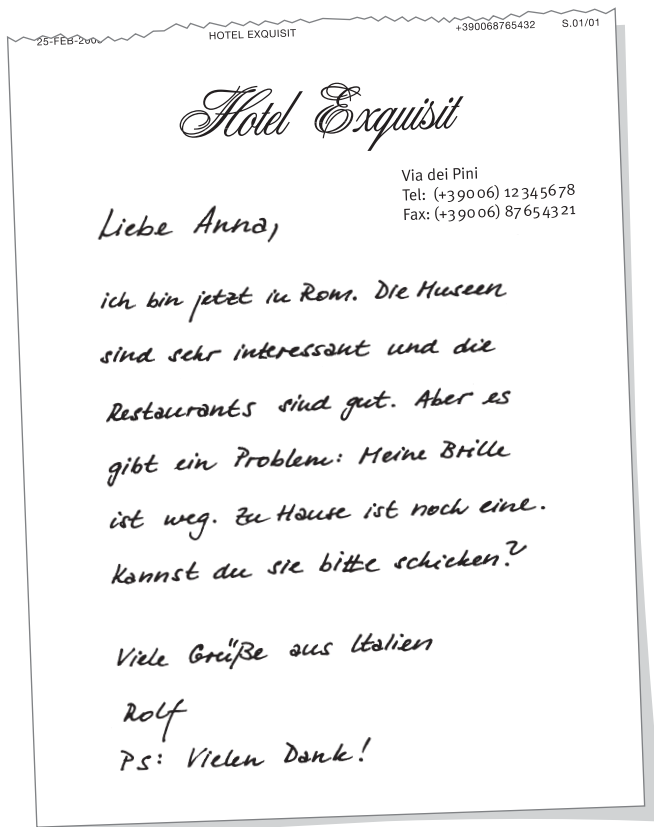 25-FEB-200
HOTEL EXQUISIT
+390068765432
S.01/01
Hotel Exquisit
Via dei Pini
Tel: (+39006) 12345678
Fax: (+39006) 87654321
Liebe Anna,
ich bin jetzt in Rom. Die Museen
sind sehr interessant und die
Restaurants sind gut. Aber es
gibt ein Problem: Meine Brille
ist weg. Zu Hause ist noch eine.
Kannst du sie bitte schicken?
Viele Grüße aus Italien
Rolf
Ps: Vielen Dank!